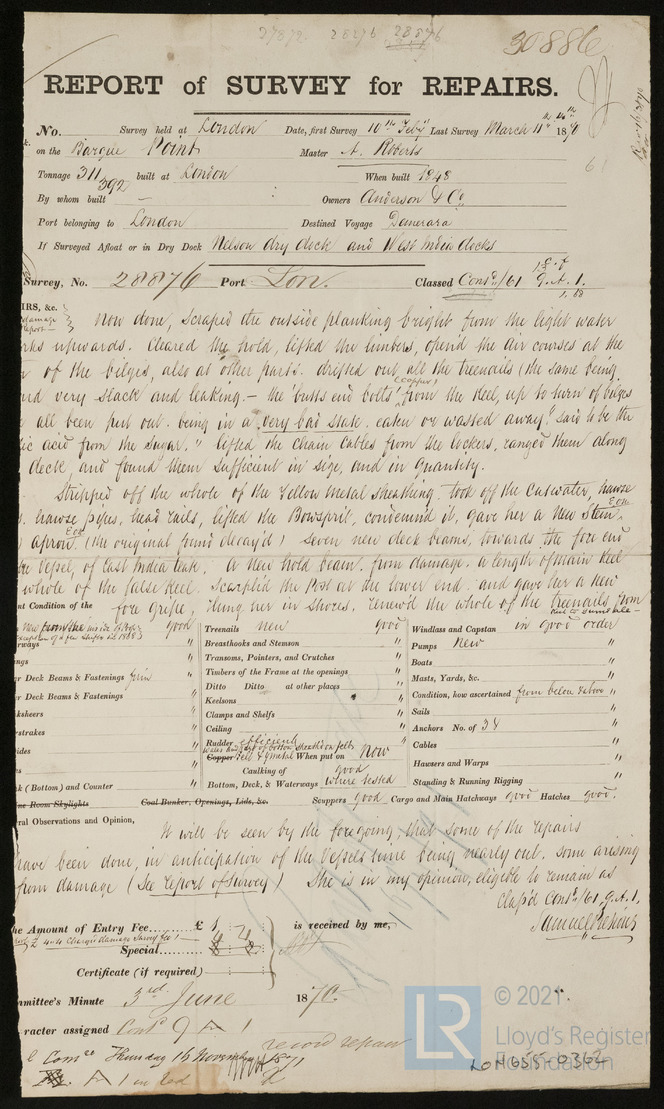 27872. 28276 28876
30886
REPORT of SURVEY for REPAIRS.
No. Survey held at London Date, first Survey 10th Feby Last Survey March 11th 1870
on the Barque Point Master A. Roberts
Tonnage 311 392 built at London When built 1848
By whom built — Owners Anderson & Co
Port belonging to London Destined Voyage Demerara
If Surveyed Afloat or in Dry Dock Nelson dry dock and West India docks
Survey, No. 28876 Port Lon. Classed Contd/61 9.A.1.
IRS, &c. Now done, Scraped the outside planking bright from the light water
rks upwards. Cleared the hold, lifted the limbers, opend the air courses at the
of the bilges, also at other parts. drifted out all the treenails (the same being
very slack and leaking. — the butts end bolts (copper) from the Keel, up to turn of bilges
all been put out. being in a very bad state. eaten or wasted away," said to be the
ic acid from the sugar." lifted the chain cables from the lockers, ranged them along
deck, and found them sufficient in size, and in quantity.
Stripped off the whole of the Yellow metal sheathing. took off the Cutwater, hawse
hawse pipes, head rails, lifted the Bowsprit, condemnd it, gave her a new Stem,
apron, (the original found decay'd) Seven new deck beams, towards the fore end
Vessel, of East India teak. A new hold beam, from damage. a length of main Keel
whole of the false Keel. Scarphd the Post at the lower end. and gave her a new
fore gripe, Hung her in shores, renew'd the whole of the treenails from
nt Condition of the
good Treenails new good Windlass and Capstan in good order
rways " Breasthooks and Stemson " Pumps New
ngs " Transoms, Pointers, and Crutches " Boats "
r Deck Beams & Fastenings " Timbers of the Frame at the openings " Masts, Yards, &c. "
r Deck Beams & Fastenings " Ditto Ditto at other places " Condition, how ascertained from below & above
ksheers " Keelsons " Sails "
rstrakes " Clamps and Shelfs " Anchors No. of 34 "
ides " Ceiling " Cables "
Rudder efficient
Copper When put on Now Hawsers and Warps "
k (Bottom) and Counter " Caulking of Bottom, Deck, & Waterways good where tested Standing & Running Rigging "
ne Room Skylights Coal Bunker, Openings, Lids, &c. Scuppers good Cargo and Main Hatchways good Hatches good.
ral Observations and Opinion,
It will be seen by the foregoing, that some of the repairs
have been done, in anticipation of the Vessels time being nearly out. some arising
from damage (See report of survey) She is in my opinion, eligible to remain as
Class'd Contd/61, 9.A.1.
he Amount of Entry Fee...... £ 1 is received by me,
Special......
Certificate (if required)
mmittee's Minute 3rd June 1870
racter assigned Contd 9 A 1
record repair
Thursday 16 November 1871
A 1 in red
© 2021
LR
Lloyd's Register
Foundation
LON655-0362